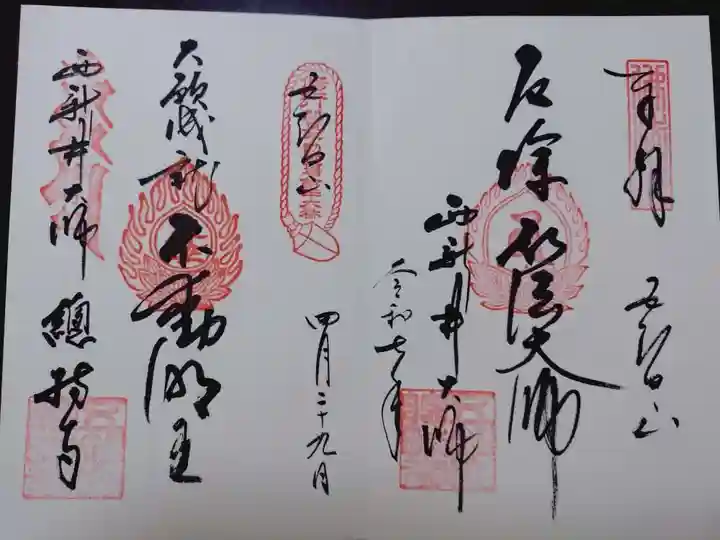 奉拝
五智山
厄除 弘法大師
西新井大師
令和七年
四月二十九日
五智山
大願成就 不動明王
西新井大師 總持寺